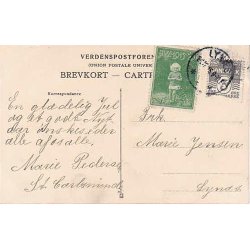 VERDENSPOSTFOREN
(UNION POSTALE UNIVER
BREVKORT — CARTH
Korrespondance
En glædelig Jul
og et godt Nyt
Aar ønskes eder
alle af os alle.
Marie Peders
St
Frk.
Marie Jensen
Lynæs